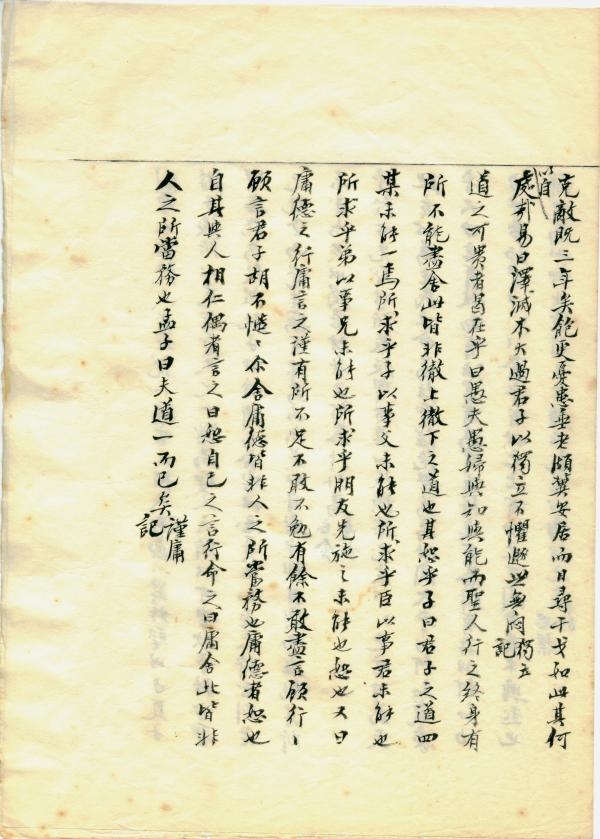 克敵既三年矣飽更憂患垂老頗冀安居而日尋干戈如此其何
以自處哉易曰澤滅木大過君子以獨立不懼遯世無悶獨立記
道之可貴者曷在乎曰愚夫愚婦與知與能而聖人行之終身有
所不能盡舍此皆非徹上徹下之道也其恕乎子曰君子之道四
某未能一焉所求乎子以事父未能也所求乎臣以事君未能也
所求乎弟以事兄未能也所求乎朋友先施之未能也恕也又曰
庸德之行庸言之謹有所不足不敢不勉有餘不敢盡言顧行行
顧言君子胡不慥慥尔舍庸德皆非人之所當務也庸德者恕也
自其與人相仁偶者言之曰恕自己之言行命之曰庸舍此皆非
人之所當務也孟子曰夫道一而已矣謹庸記